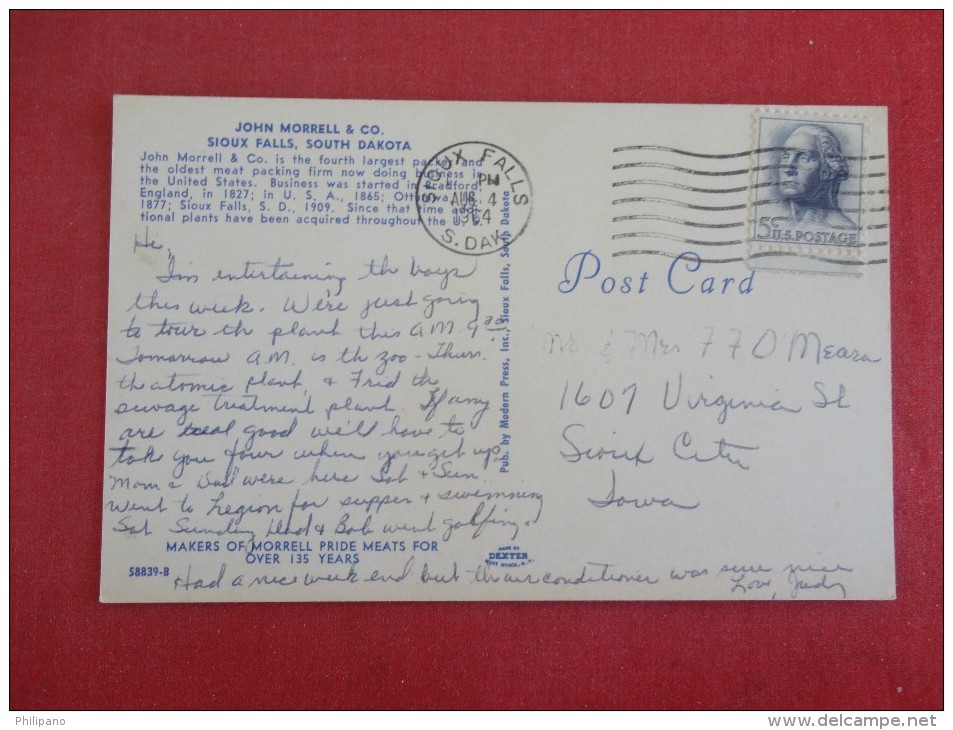 JOHN MORRELL & CO.
SIOUX FALLS, SOUTH DAKOTA
John Morrell & Co. is the fourth largest packer and
the oldest meat packing firm now doing business in
the United States. Business was started in Bradford,
England, in 1827; in U. S. A., 1865; Ottumwa,
1877; Sioux Falls, S. D., 1909. Since that time addi-
tional plants have been acquired throughout the U. S.
Hi,
I'm entertaining the boys
this week. We're just going
to tour the plant this A.M. 9:30
Tomorrow A.M. is the zoo - Thurs.
the atomic plant, & Frid the
sewage treatment plant. If any
are real good we'll have to
take you four when you get up.
Mom & Dad were here Sat & Sun.
Went to Legion for supper & swimming
Sat. Sunday Dad & Bob went golfing.
MAKERS OF MORRELL PRIDE MEATS FOR
OVER 135 YEARS
58839-B
Had a nice week end but the air conditioner was sure nice
Love, Judy
Pub. by Modern Press, Inc., Sioux Falls, South Dakota
MADE BY
DEXTER
WEST NYACK, N.Y.
SIOUX FALLS
PM
AUG 4
1964
S. DAK.
5¢
U.S. POSTAGE
Post Card
Mr & Mrs F F O'Meara
1607 Virginia St
Sioux City
Iowa
Philipano
www.delcampe.net